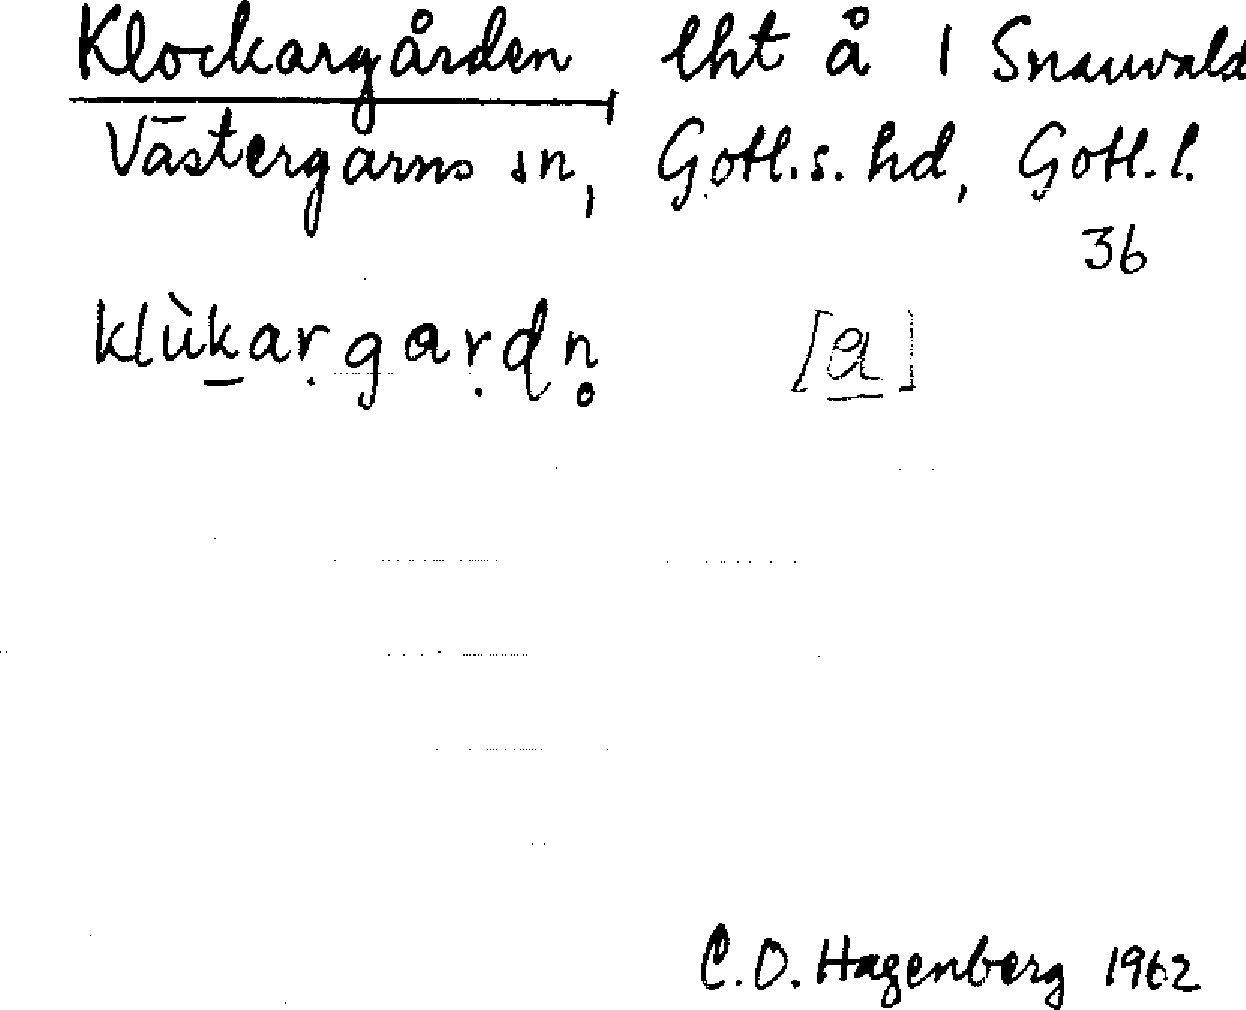 Klockargården, lht å 1 Snauvald
Västergarns sn, Gotl.s. hd, Gotl.l.
36
klùk̲aṛgaṛdn̥ [a̲]
C.O. Hagenberg 1962